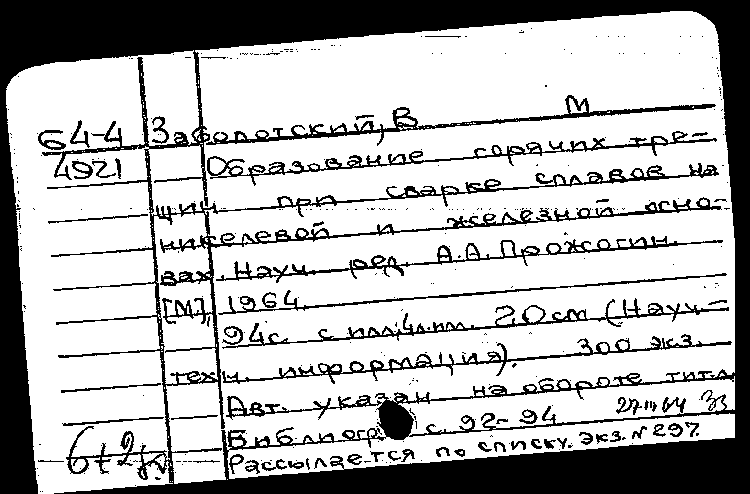 М
64-4 Заболотский, В
4921 Образование горячих тре-
щин при сварке сплавов на
никелевой и железной осно-
вах. Науч. ред. А.А. Прожогин.
[М], 1964.
94с. с илл; 4л. ил. 20см (Науч.-
техн. информация). 300 экз.
Авт. указан на обороте тит. л.
Библиогр с. 92-94
Рассылается по списку. экз. № 297.